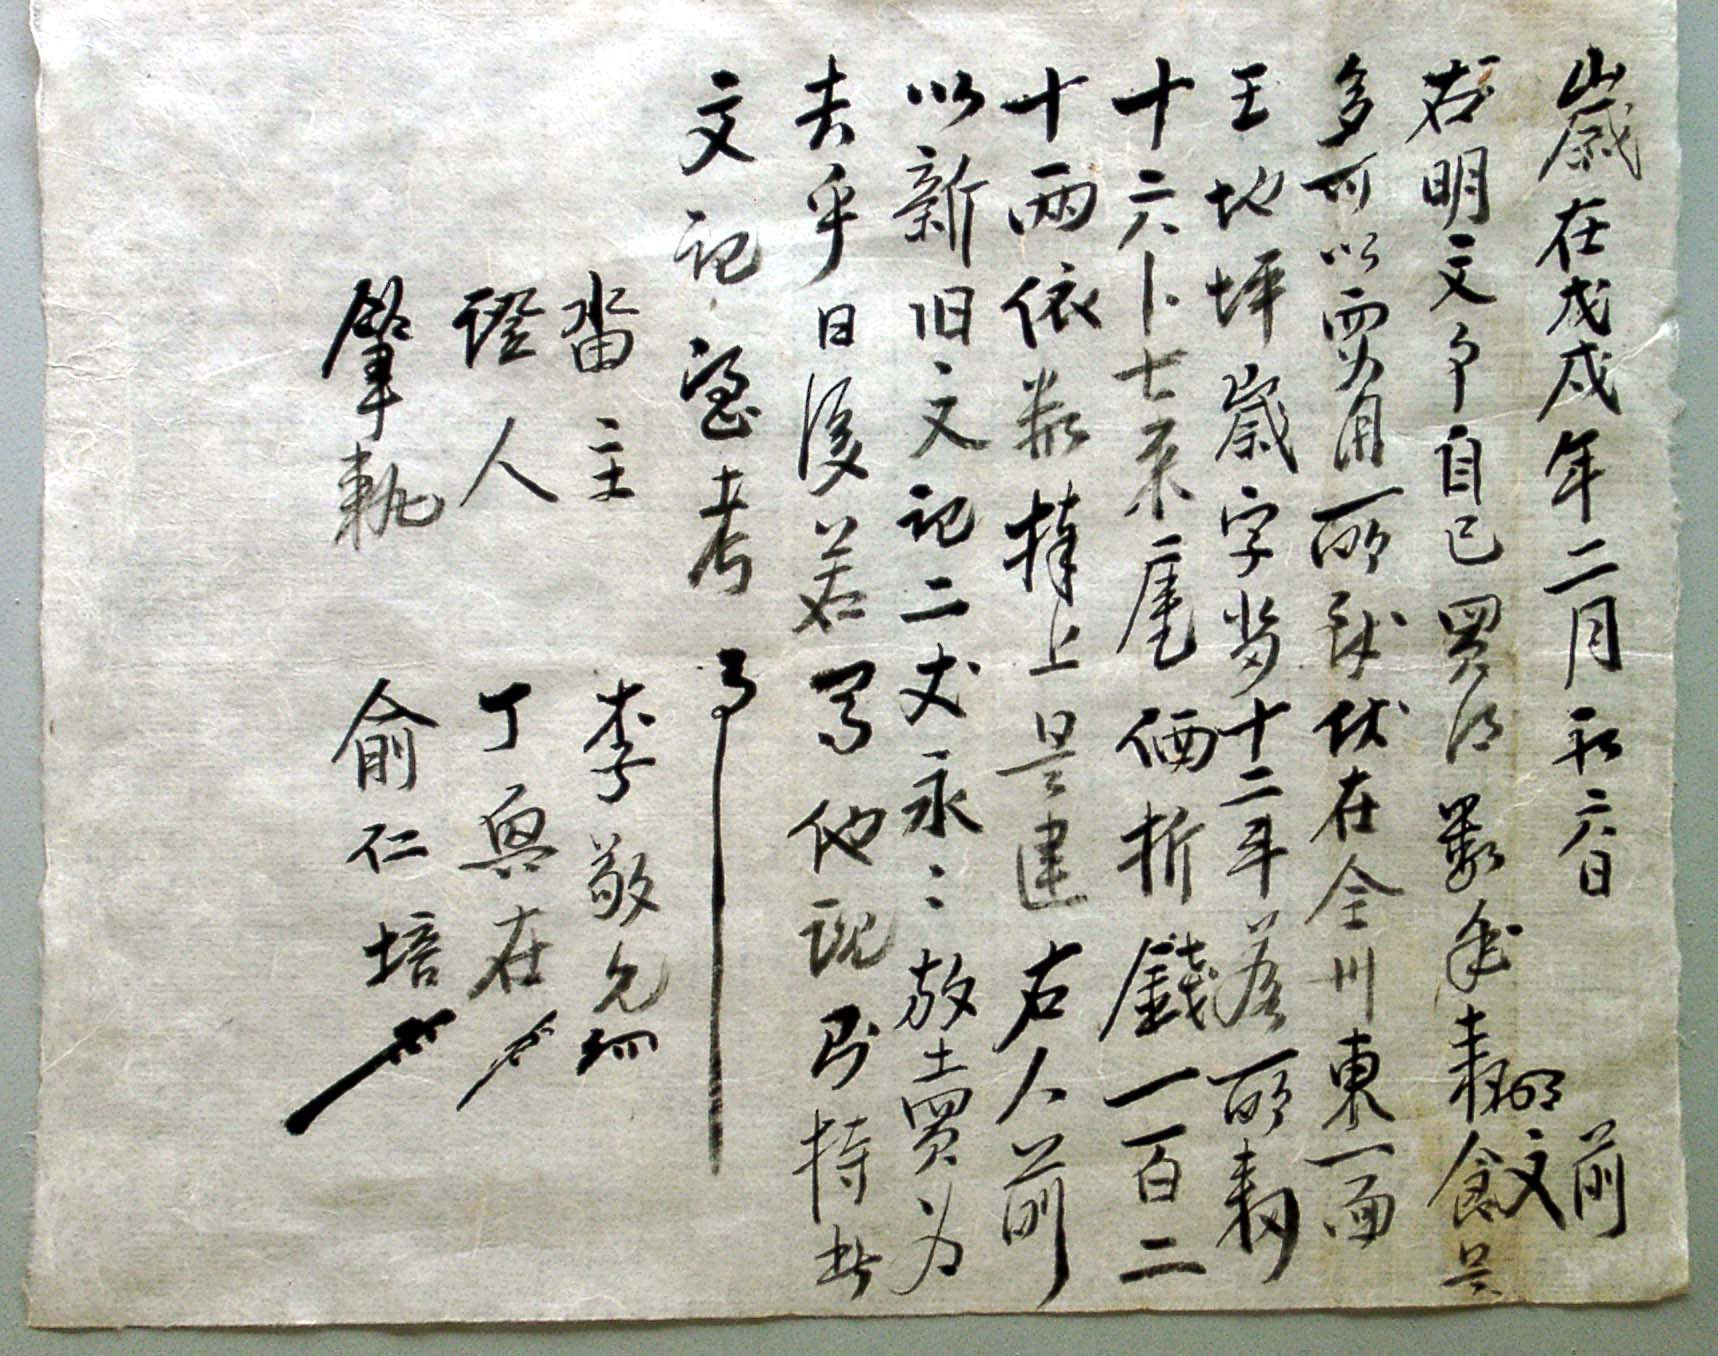 歲在戊戌年二月初六日 前
明文
右明文事自己買得累年耕食是
多可以買用所致伏在全州東一面
王地坪歲字畓十二斗落所耕
十六卜七束庫価折錢一百二
十兩依数捧上是遣右人前
以新旧文記二丈永〻放賣为
去乎日後若有他説則持此
文記憑考事
畓主 李敬允
證人 丁興在
筆執 俞仁培